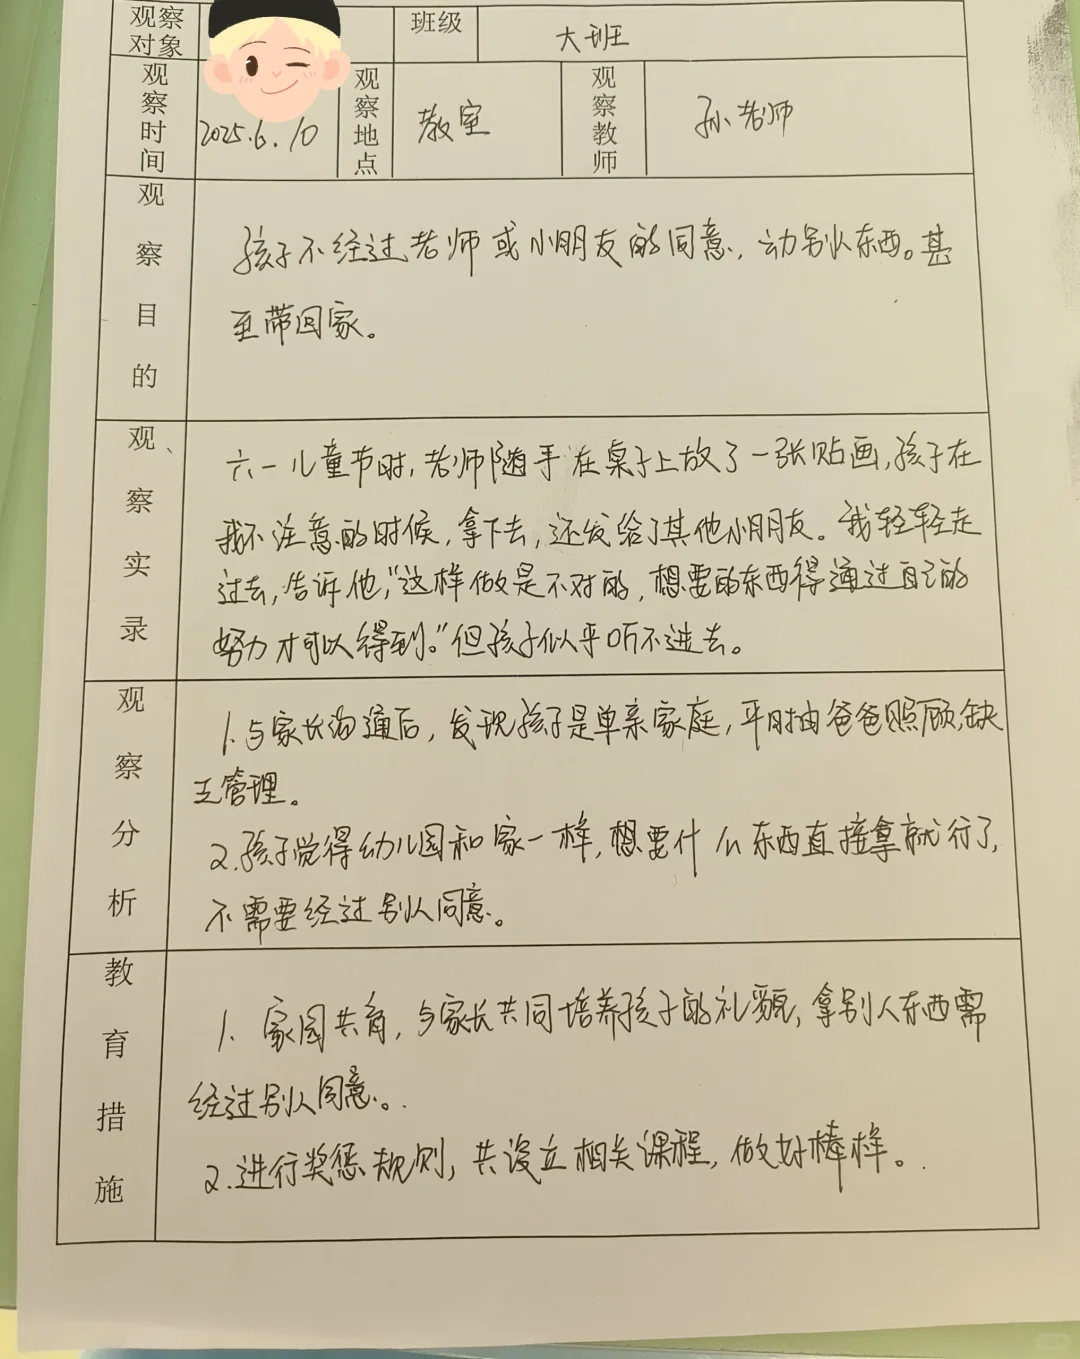 观察对象 班级 大班
观察时间 2025.6.10 观察地点 教室 观察教师 孙老师
观察目的
孩子不经过老师或小朋友的同意、动别人东西。甚
至带回家。
观察实录
六一儿童节时,老师随手在桌子上放了一张贴画,孩子在
我不注意的时候,拿下去,还发给了其他小朋友。我轻轻走
过去,告诉他,“这样做是不对的,想要的东西得通过自己的
努力才可以得到。”但孩子似乎听不进去。
观察分析
1.与家长沟通后,发现孩子是单亲家庭,平时由爸爸照顾,缺
乏管理。
2.孩子觉得幼儿园和家一样,想要什么东西直接拿就行了,
不需要经过别人同意。
教育措施
1、家园共育,与家长共同培养孩子的礼貌,拿别人东西需
经过别人同意。
2.进行奖惩规则,共设立相关课程,做好榜样。